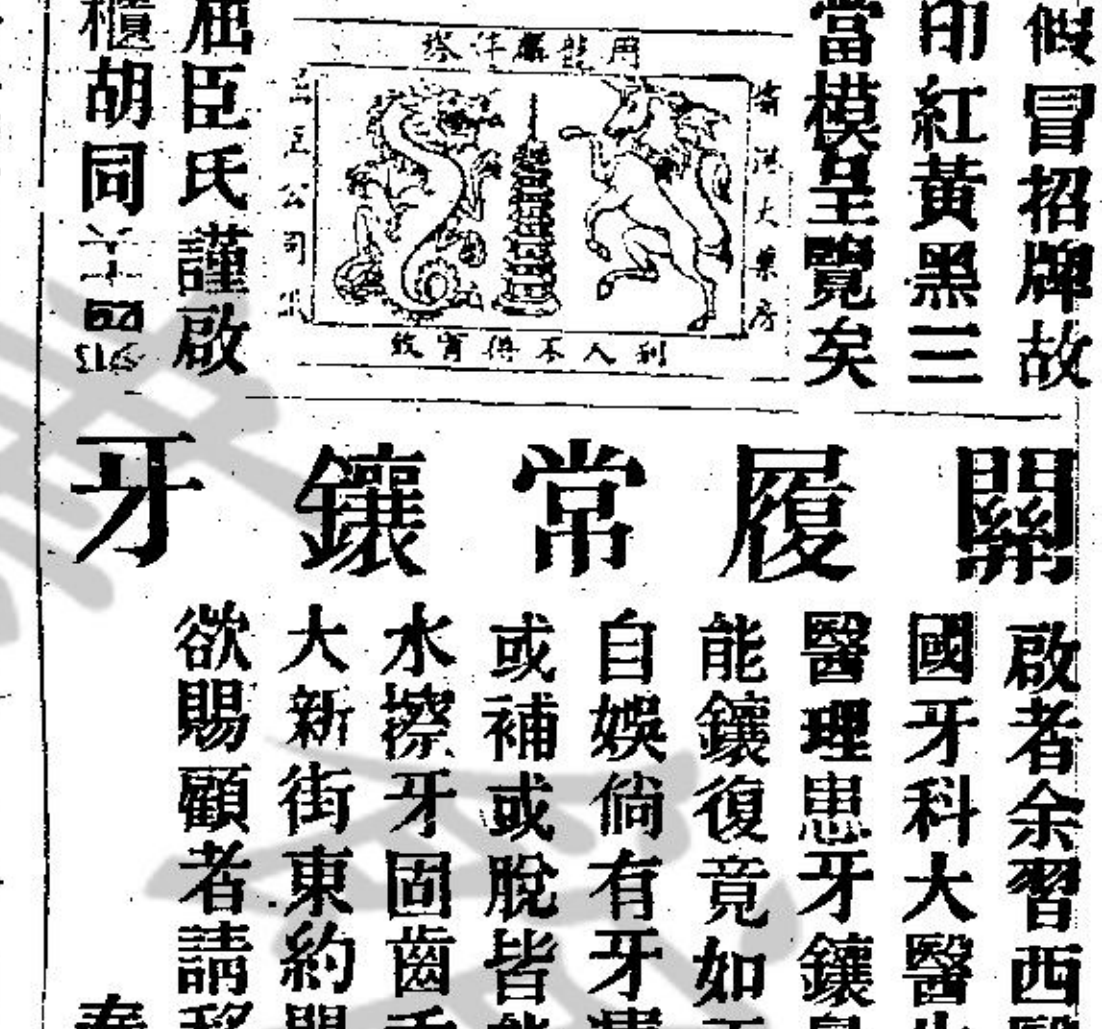 假冒招牌故
印紅黃黑三
當模呈覽矣
用龍麒洋塔
大藥房
公司
利人不得冒效
屈臣氏謹啟
櫃胡同
關履常鑲牙
啟者余習西醫
國牙科大醫生
醫理患牙鑲
能鑲復竟如
自娛倘有牙
或補或脫皆能
水擦牙固齒
大新街東約
欲賜顧者請移